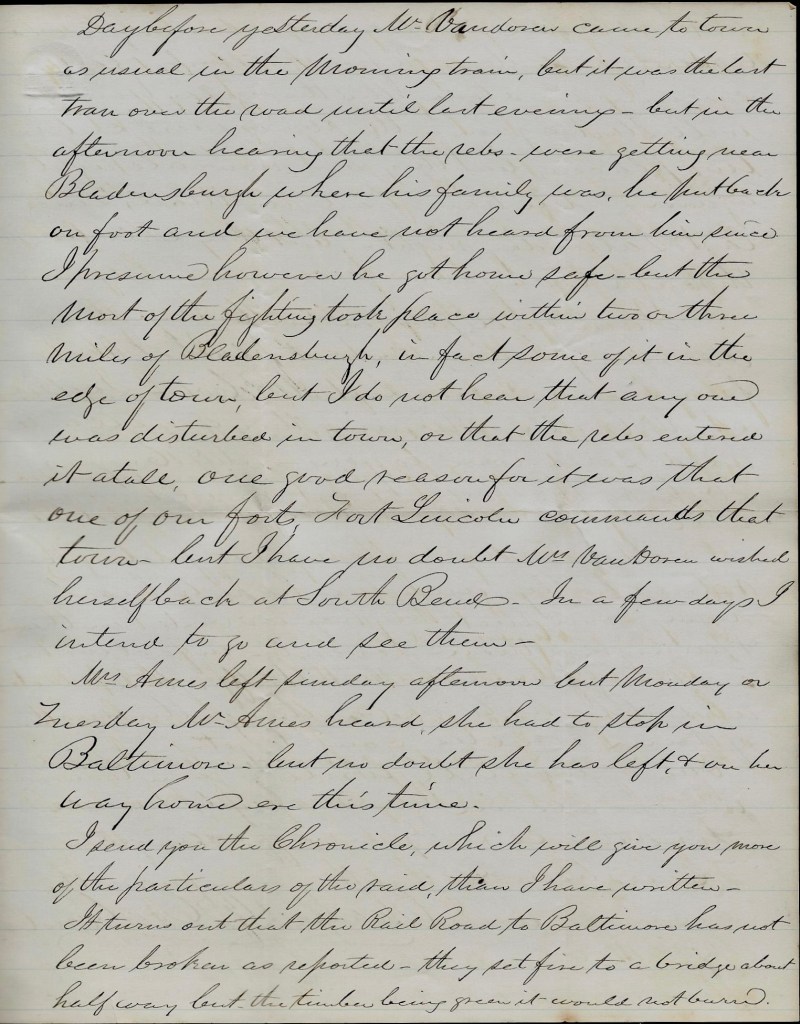 Day before yesterday Mr Vandoren came to town
as usual in the Morning train, but it was the last
tran over the road until last evening - but in the
afternoon hearing that the rebs - were getting near
Bladensburgh where his family was, he put back
on foot and we have not heard from him since
I presume however he got home safe - but the
most of the fighting took place within two or three
miles of Bladensburgh, in fact some of it in the
edge of town, but I do not hear that any one
was disturbed in town, or that the rebs entered
it atall, one good reason for it was that
one of our forts, Fort Lincoln commands that
town - but I have no doubt Mrs VanDoren wished
herself back at South Bend - In a few days I
intend to go and see them -
Mrs Ames left sunday afternoon but Monday or
Tuesday Mr Ames heard, she had to stop in
Baltimore - but no doubt she has left, & on her
way home ere this time.
I send you the Chronicle, which will give you more
of the particulars of the raid, than I have written -
It turns out that the Rail Road to Baltimore has not
been broken as reported - they set fire to a bridge about
half way but the timber being green it would not burn.